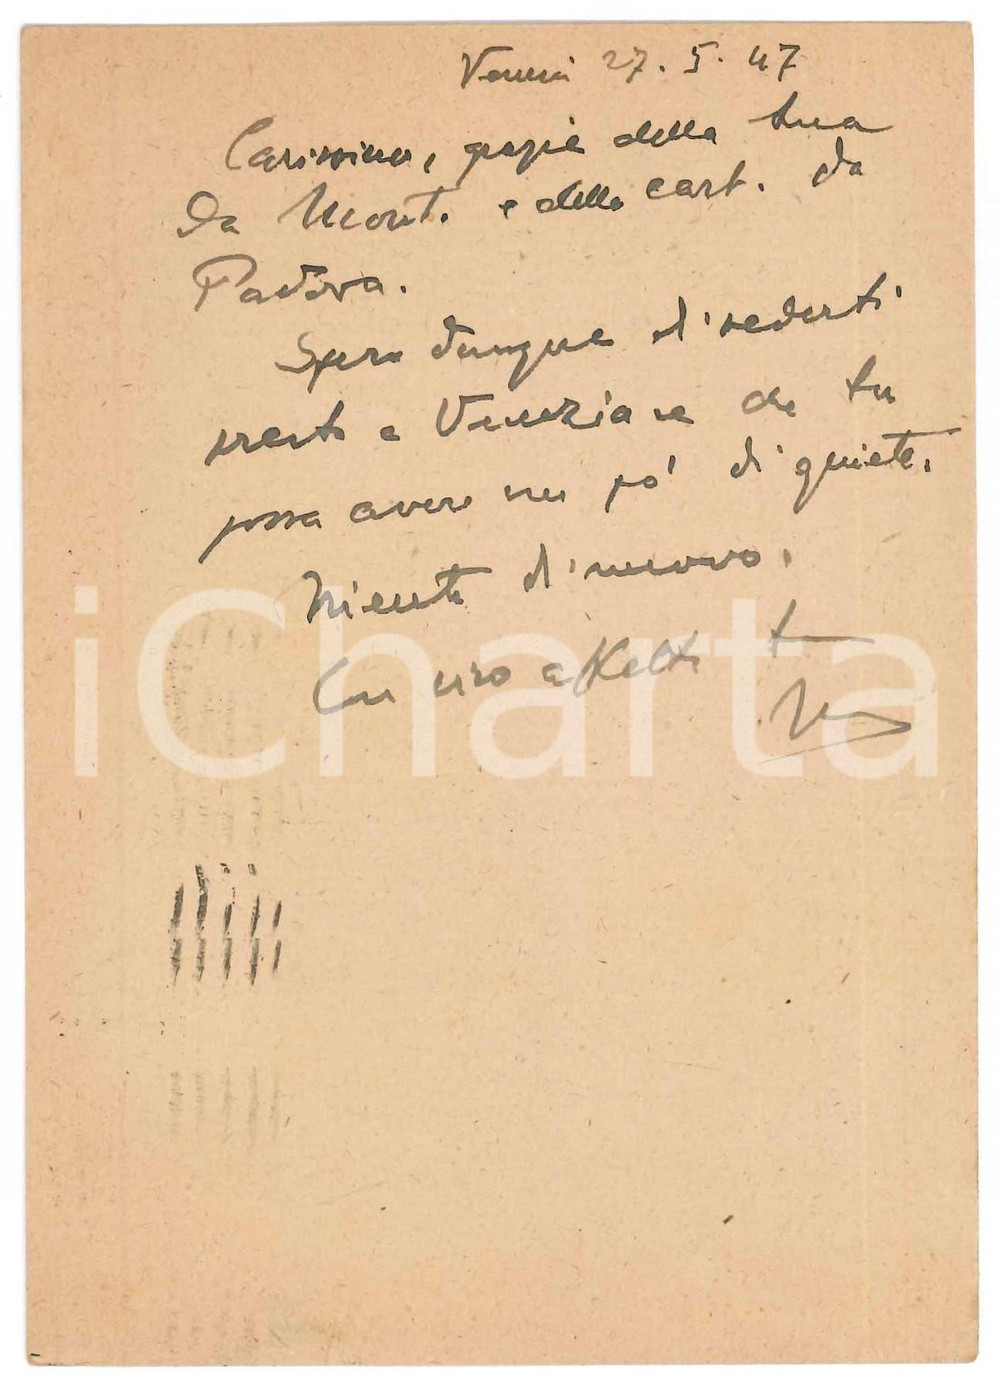 27. 5. 47
Carissimo, grazie della tua
da Mont. e della cart. da
Padova.
Spero dunque di vederti
presto a Venezia e che tu
possa avere un pò di quiete.
Niente di nuovo.
Con vivo affetto tuo
iCharta